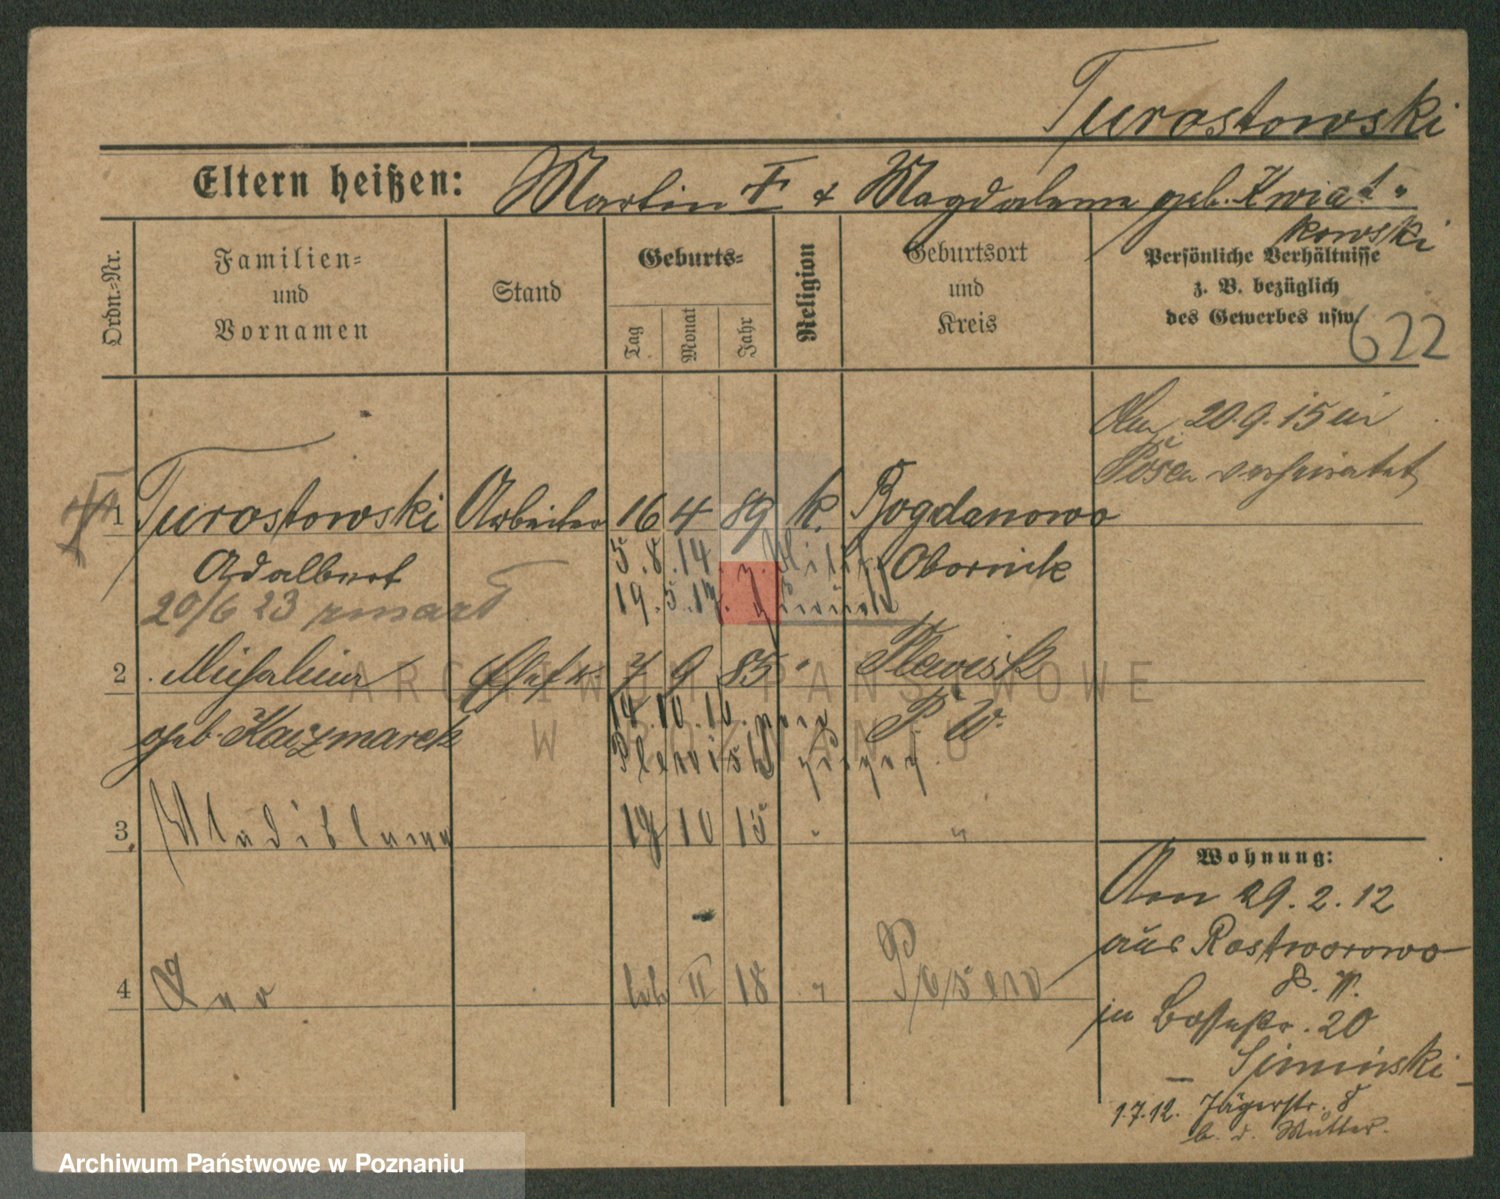 Turostowski
Eltern heißen: Martin † & Magdalena geb. Kwiat-
kowski
Ordn.-Nr.
Familien-
und
Vornamen
Stand
Geburts-
Tag
Monat
Jahr
Religion
Geburtsort
und
Kreis
Persönliche Verhältnisse
z. B. bezüglich
des Gewerbes usw.
622
20.9.15 in
Posen verheiratet
1 Turostowski Arbeiter 16 4 89 k. Bogdanowo
Adalbert 5.8.14 z. Milit. Obornik
20/6 23 zmarł 19.5.17. zurück
2 Michalina Ehefr. 7 9 85 " Plewisk
geb. Kaczmarek 14.10.16. nach P. W.
Plewisk
3 Wladislawa 17 10 15 " "
4 Leo II 18 " Posen
Wohnung:
Am 29.2.12
aus Rostworowo
in 20
Siminski
1.7.12. Jägerstr. 8
b. d. Mutter.
ARCHIWUM PAŃSTWOWE
W POZNANIU
Archiwum Państwowe w Poznaniu